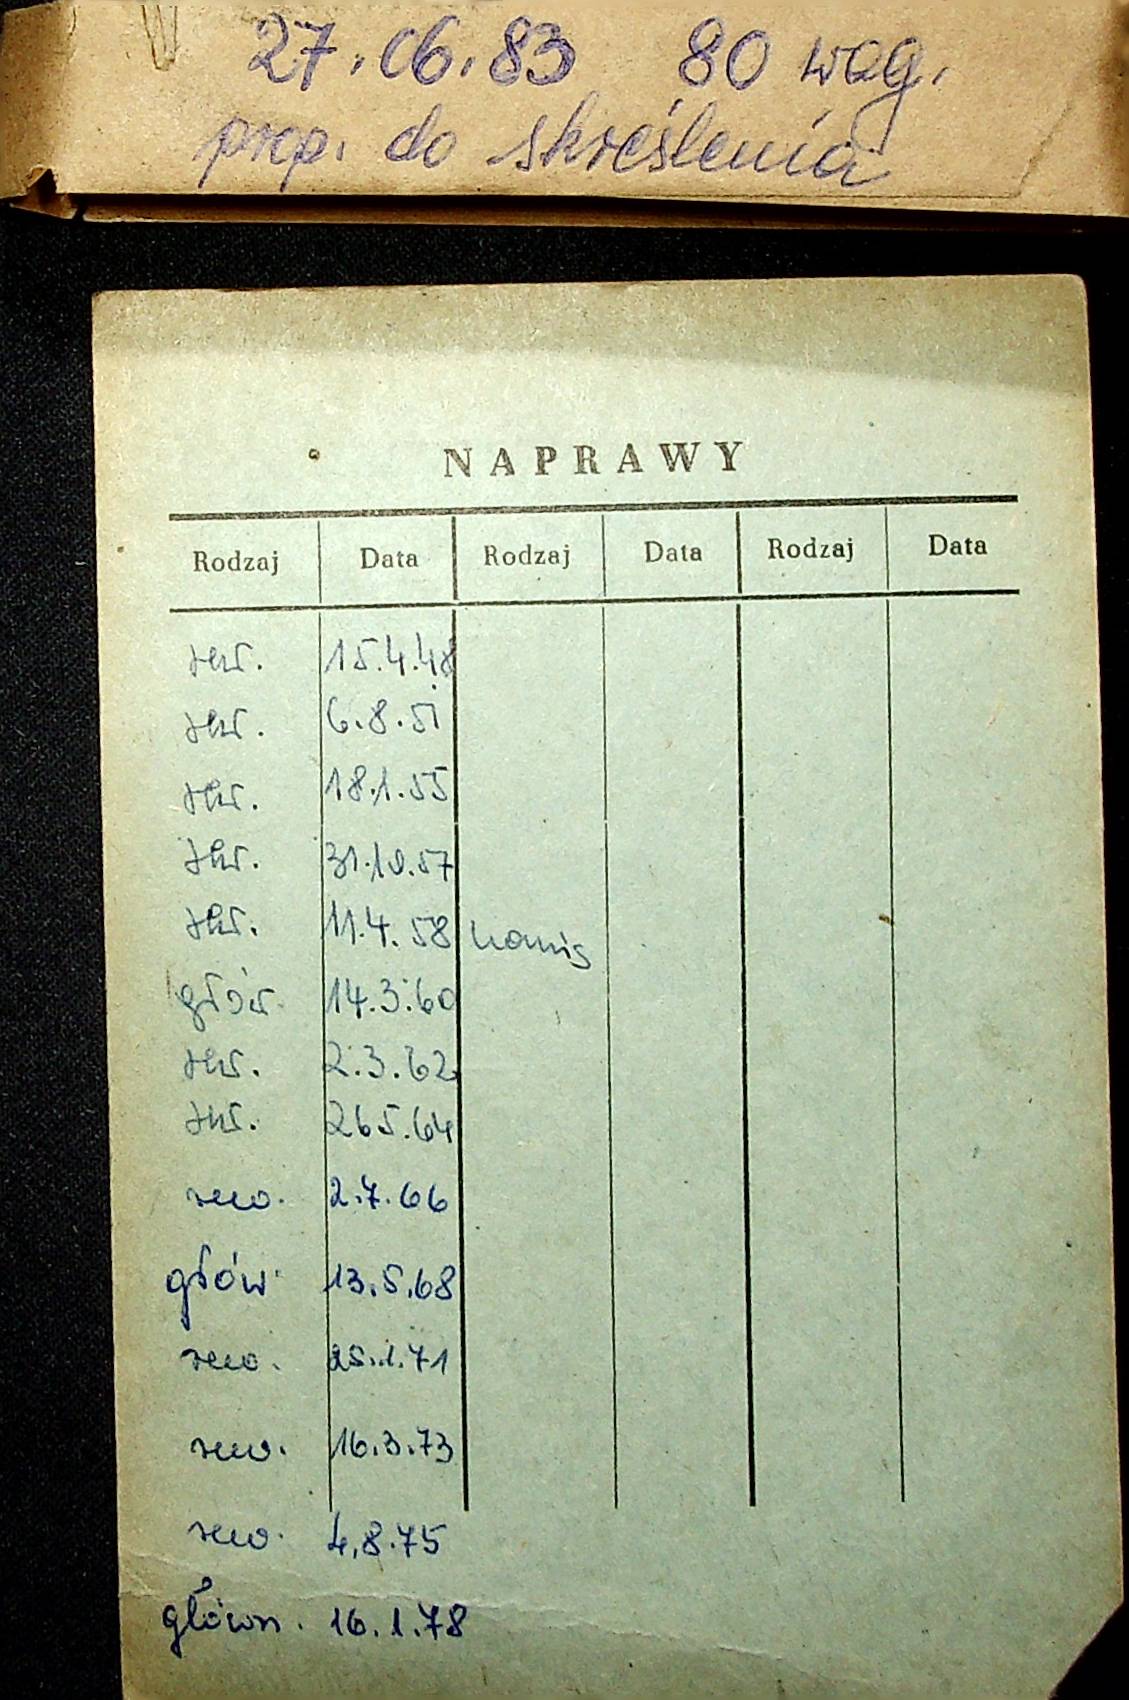 27.06.83 80 wag.
prop. do skreślenia
NAPRAWY
Rodzaj Data Rodzaj Data Rodzaj Data
śr. 15.4.48
śr. 6.8.51
śr. 18.1.55
śr. 31.10.57
śr. 11.4.58
głów. 14.3.60
śr. 2.3.62
śr. 26 5.64
rew. 2.7.66
głów. 13.5.68
rew. 25.1.71
rew. 16.3.73
rew. 4,8.75
główn. 16.1.78